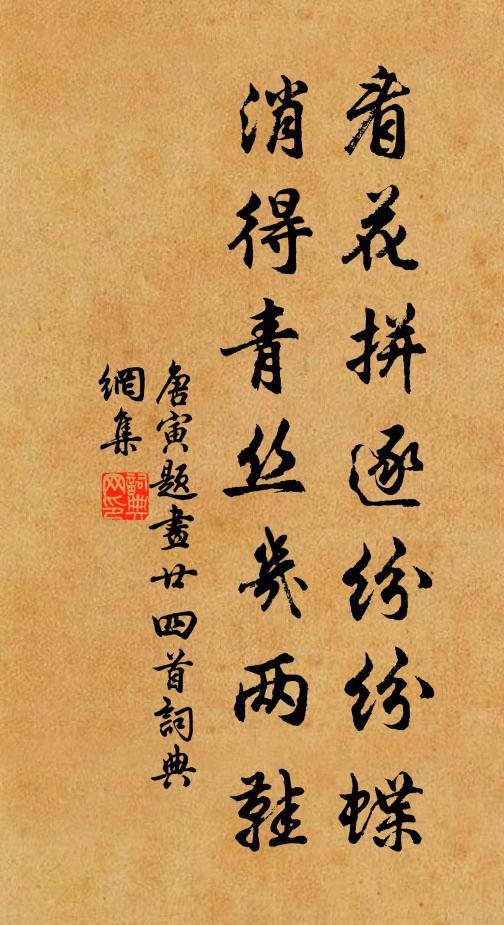 看花拼逐纷纷蝶
消得青丝几两鞋
唐寅题畫廿四首詞典
網集
詞典
网印